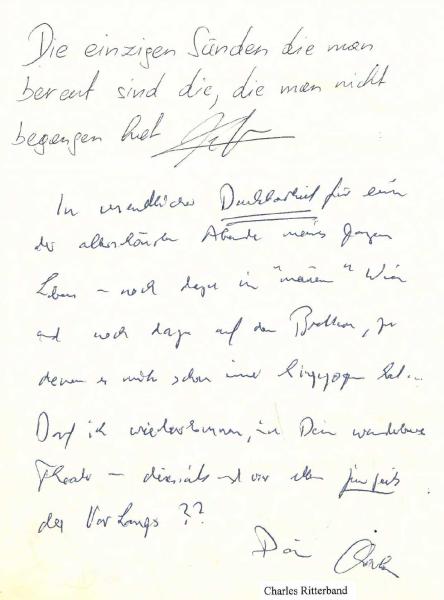 Die einzigen Sünden die man
bereut sind die, die man nicht
begangen hat
In unendlicher Dankbarkeit für einen
der allerschönsten Abende meines ganzen
Lebens – noch dazu in "meinem" Wien
und noch dazu auf den Brettern, zu
denen es mich schon immer hingezogen hat...
Darf ich wiederkommen, in Dein wunderbares
Theater – diesseits und vor allem jenseits
des Vorhangs ??
Dein
Charles Ritterband